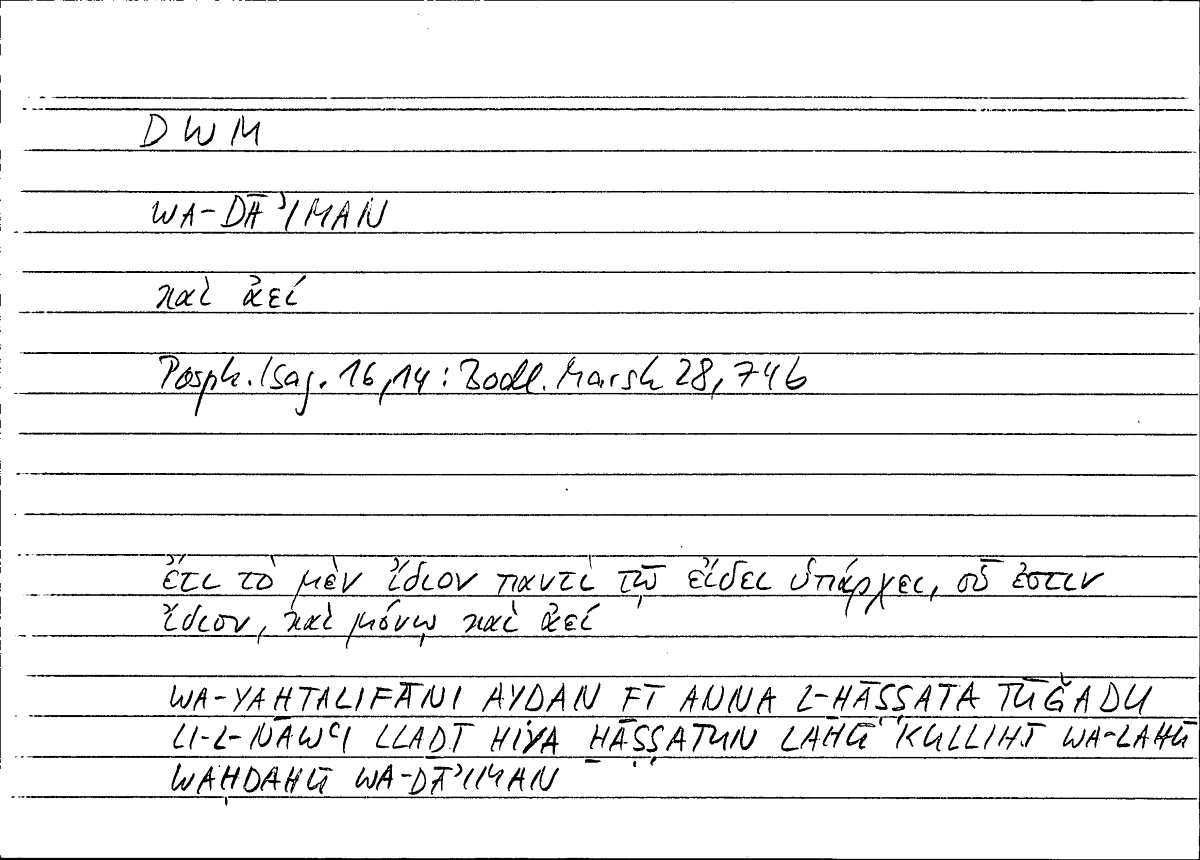 DWM
WA-DĀʾIMAN
καὶ ἀεί
Porph. Isag. 16,14: Bodl. Marsh 28, 74b
ἔτι τὸ μὲν ἴδιον παντὶ τῷ εἴδει ὑπάρχει, οὗ ἐστιν
ἴδιον, καὶ μόνῳ καὶ ἀεί
WA-YAHTALIFĀNI AYDAN FĪ ANNA L-HĀṢṢATA TŪǦADU
LI-L-NAWʿI LLADĪ HIYA H̱ĀṢṢATUN LAHŪ KULLIHĪ WA-LAHŪ
WAḤDAHŪ WA-DĀʾIMAN